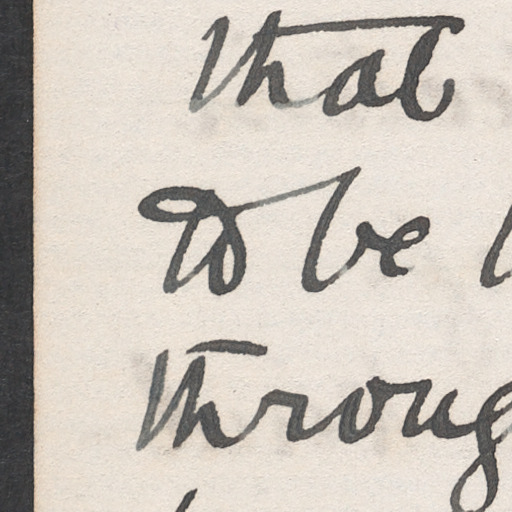 that
to be
throug